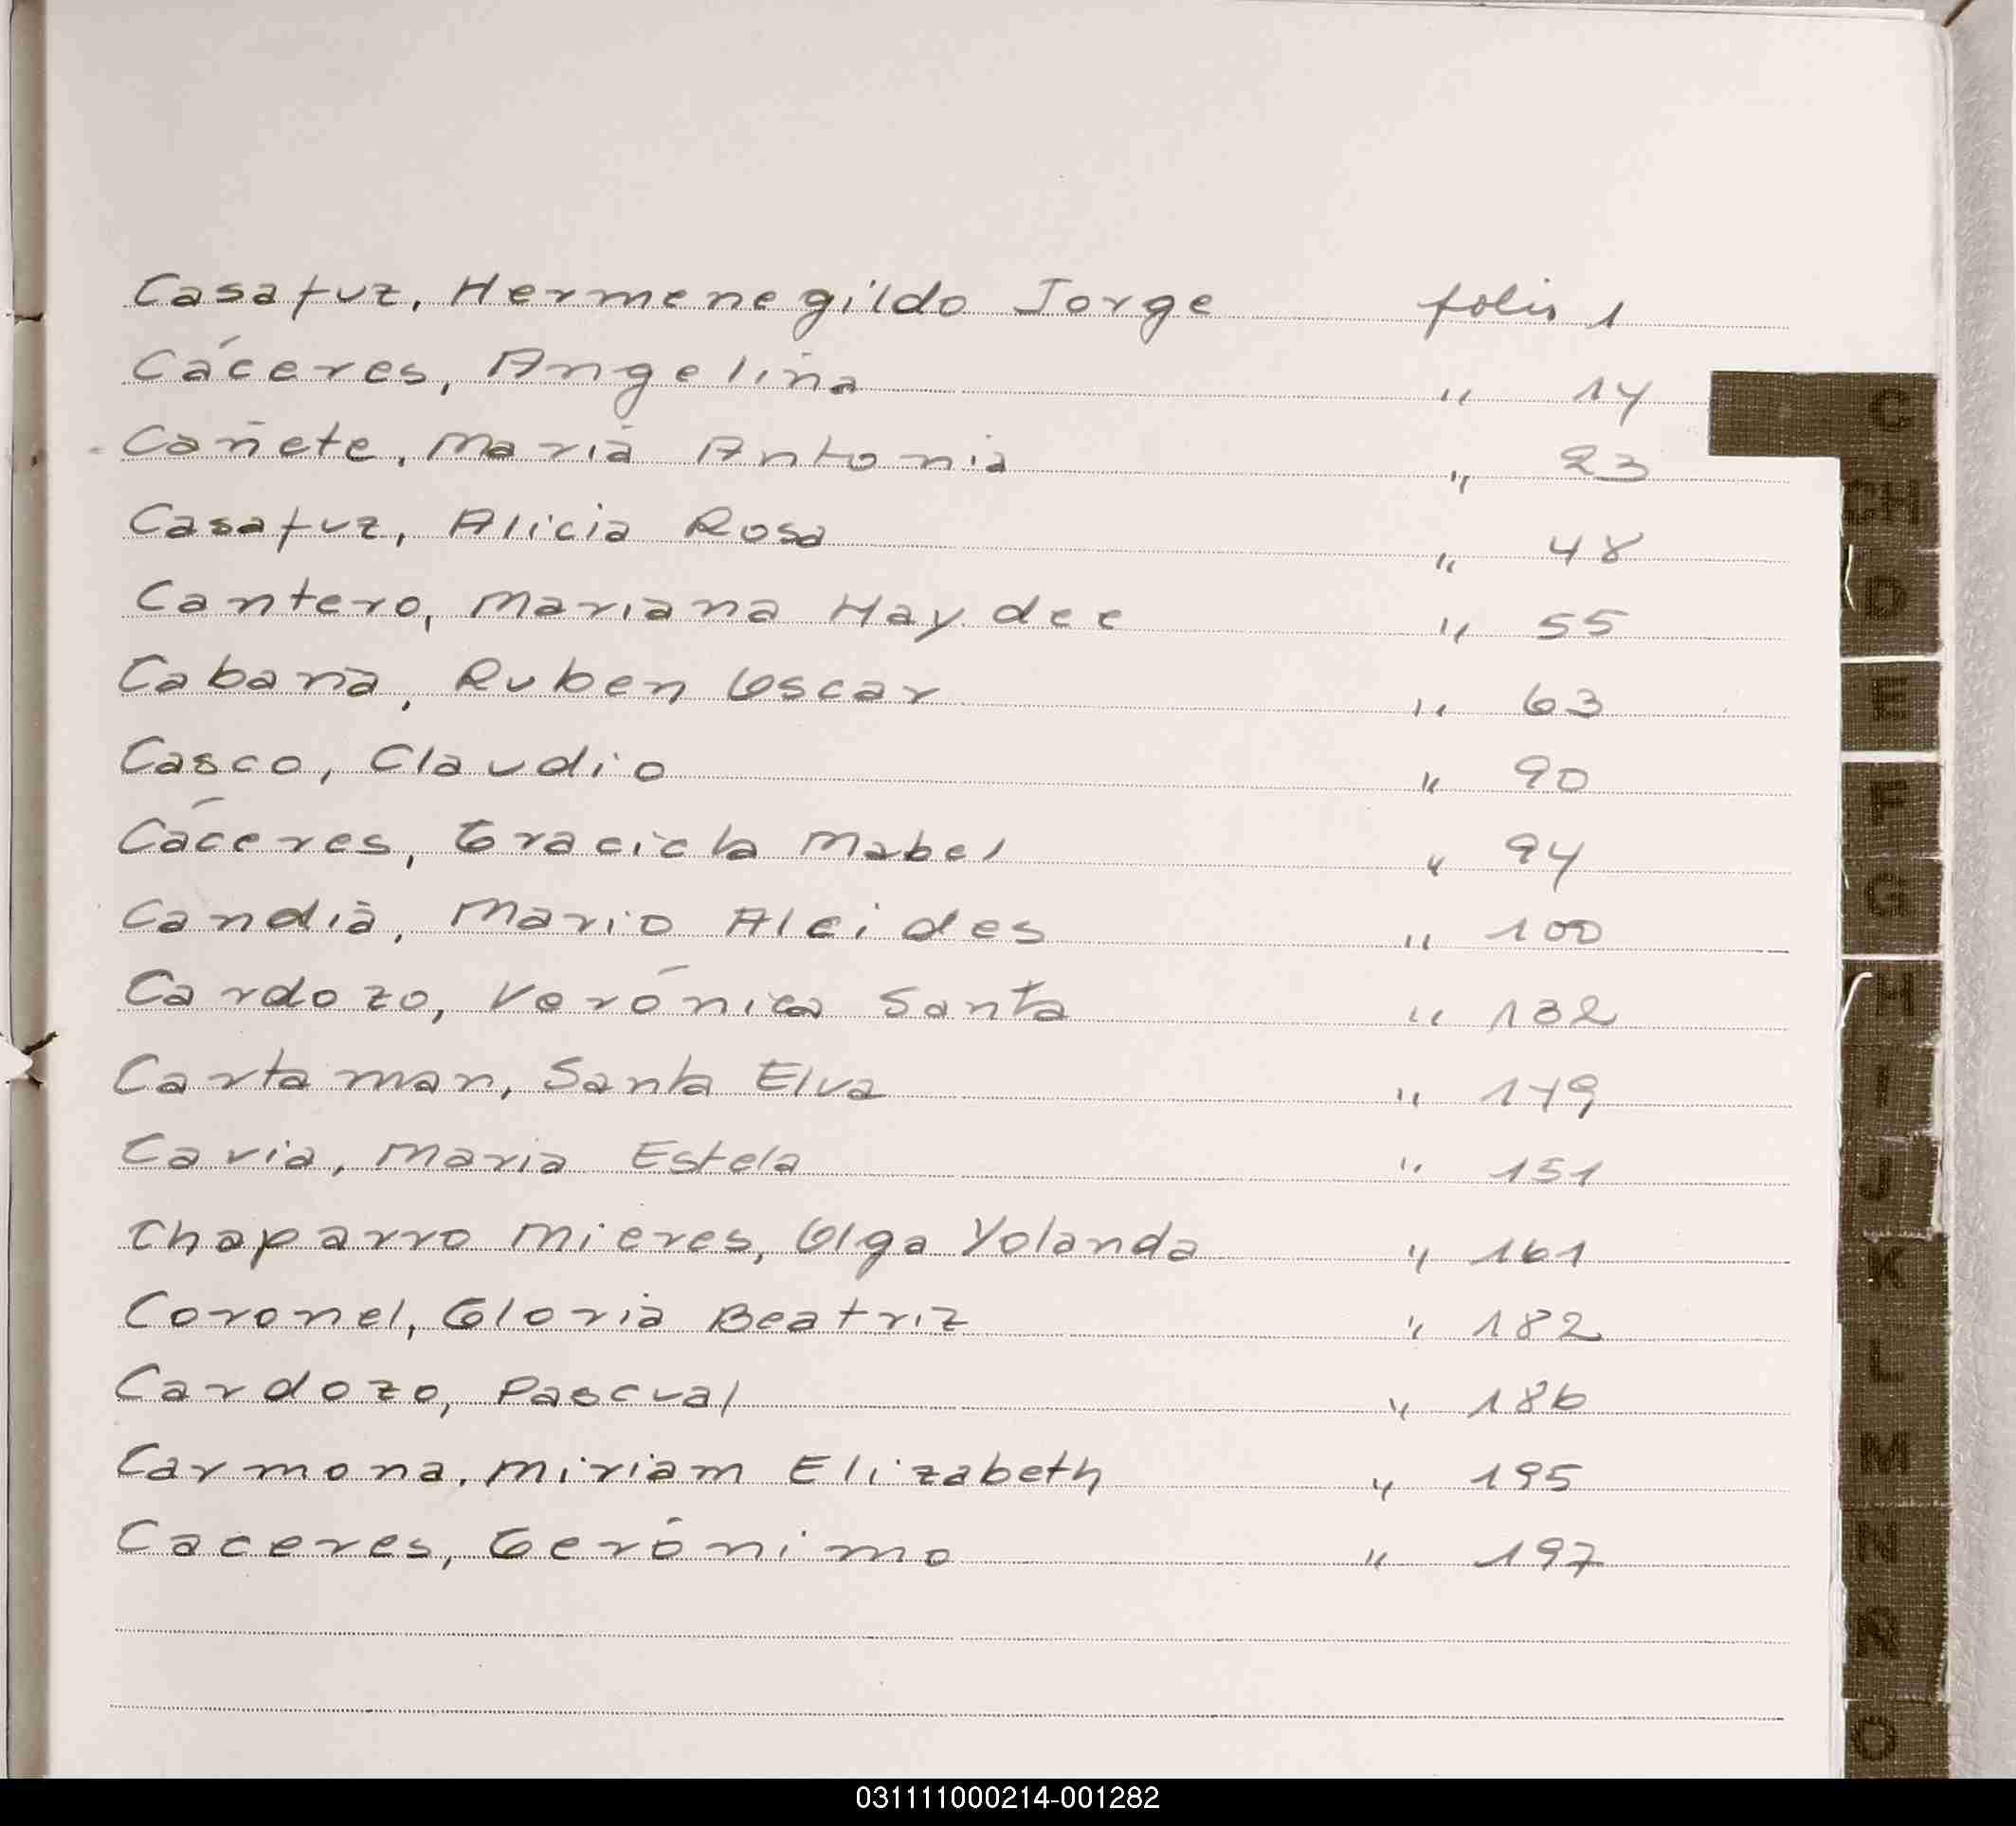 Casafuz, Hermenegildo Jorge folio 1
Cáceres, Angelina " 14
Cañete, Maria Antonia " 23
Casafuz, Alicia Rosa " 48
Cantero, Mariana Haydee " 55
Cabaña, Ruben Oscar " 63
Casco, Claudio " 90
Cáceres, Graciela Mabel " 94
Candia, Mario Alcides " 100
Cardozo, Verónica Santa " 132
Cartaman, Santa Elva " 149
Cavia, Maria Estela " 151
Chaparro Mieres, Olga Yolanda " 161
Coronel, Gloria Beatriz " 182
Cardozo, Pascual " 186
Carmona, Miriam Elizabeth " 195
Caceres, Gerónimo " 197
C
CH
D
E
F
G
H
I
J
K
L
M
N
Ñ
O
031111000214-001282